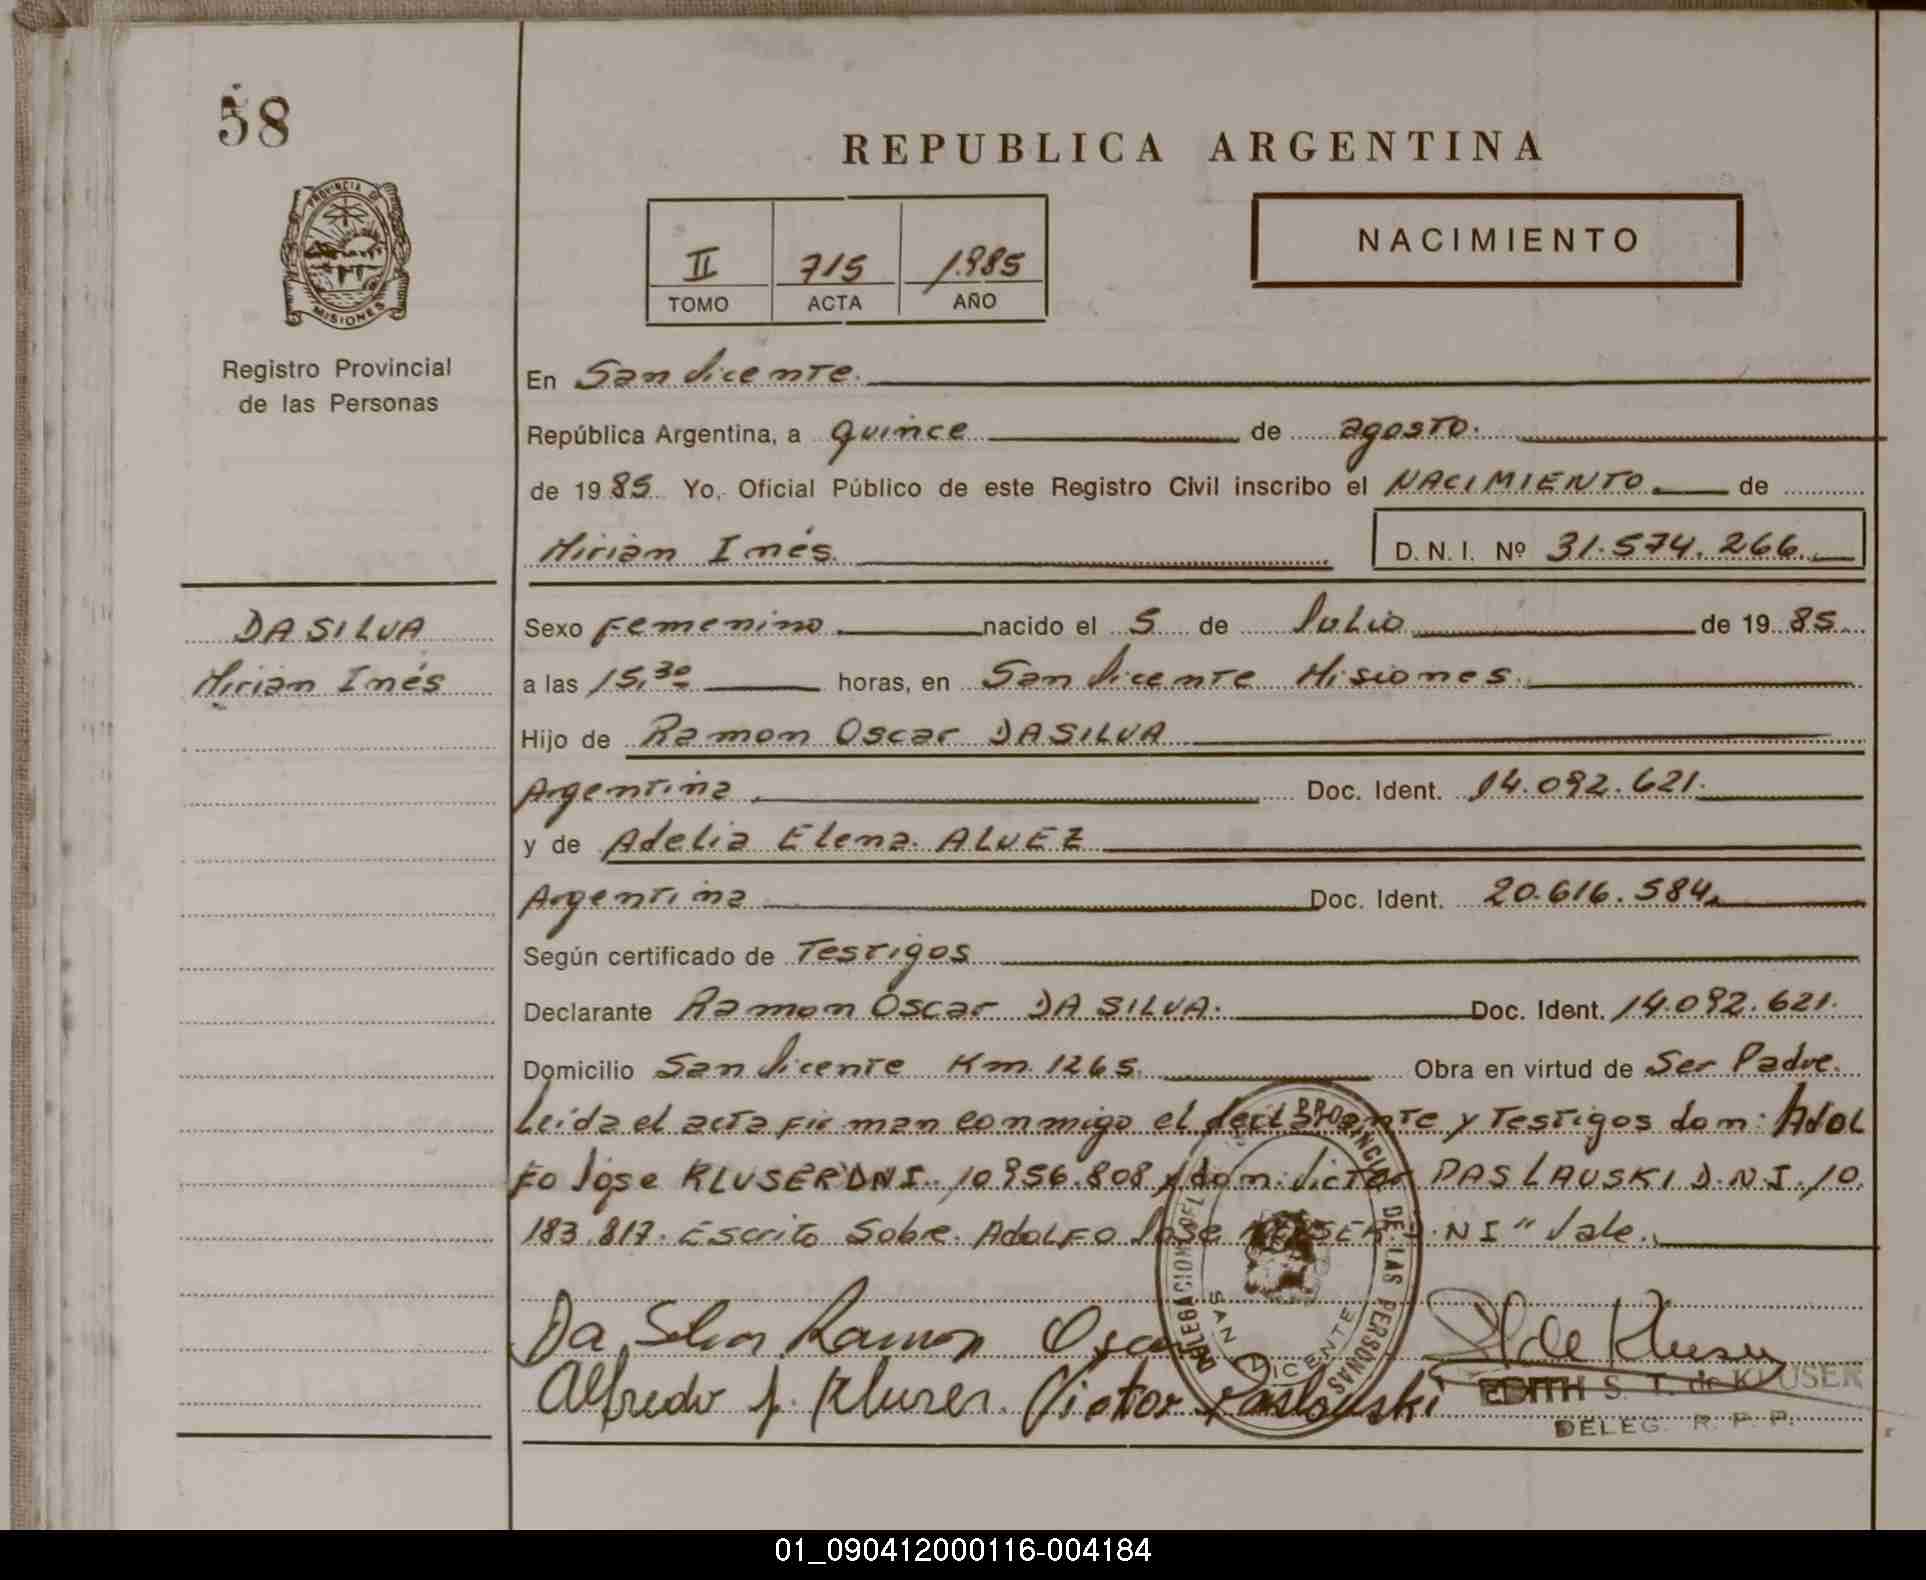 58
REPUBLICA ARGENTINA
PROVINCIA DE
MISIONES
Registro Provincial
de las Personas
II 715 1985
TOMO ACTA AÑO
NACIMIENTO
En San Vicente.
República Argentina, a quince de agosto.
de 1985. Yo, Oficial Público de este Registro Civil inscribo el NACIMIENTO de
Mirian Inés. D. N. I. Nº 31.574.266.
DA SILVA
Mirian Inés
Sexo Femenino nacido el 5 de Julio de 1985.
a las 15,30 horas, en San Vicente Misiones.
Hijo de Ramon Oscar DA SILVA
Argentina Doc. Ident. 14.092.621.
y de Adelia Elena ALVEZ
Argentina Doc. Ident. 20.616.584.
Según certificado de Testigos
Declarante Ramon Oscar DA SILVA. Doc. Ident. 14.092.621.
Domicilio San Vicente Km. 1265. Obra en virtud de Ser Padre.
Leida el acta firman conmigo el declarante y Testigos don: Adol
Fo Jose KLUSER DNI. 10.956.808 y don: Victor PASLAUSKI D.N.I. 10.
183.817. Escrito Sobre Adolfo Jose KLUSER D.NI" Vale.
DELEGACION DEL PROVINCIAL DE LAS PERSONAS
SAN VICENTE
Da Silva Ramon Oscar
Alfredo J. Kluser. Victor Paslauski
EDITH S. T. de KLUSER
DELEG. R. P. P.
01_090412000116-004184